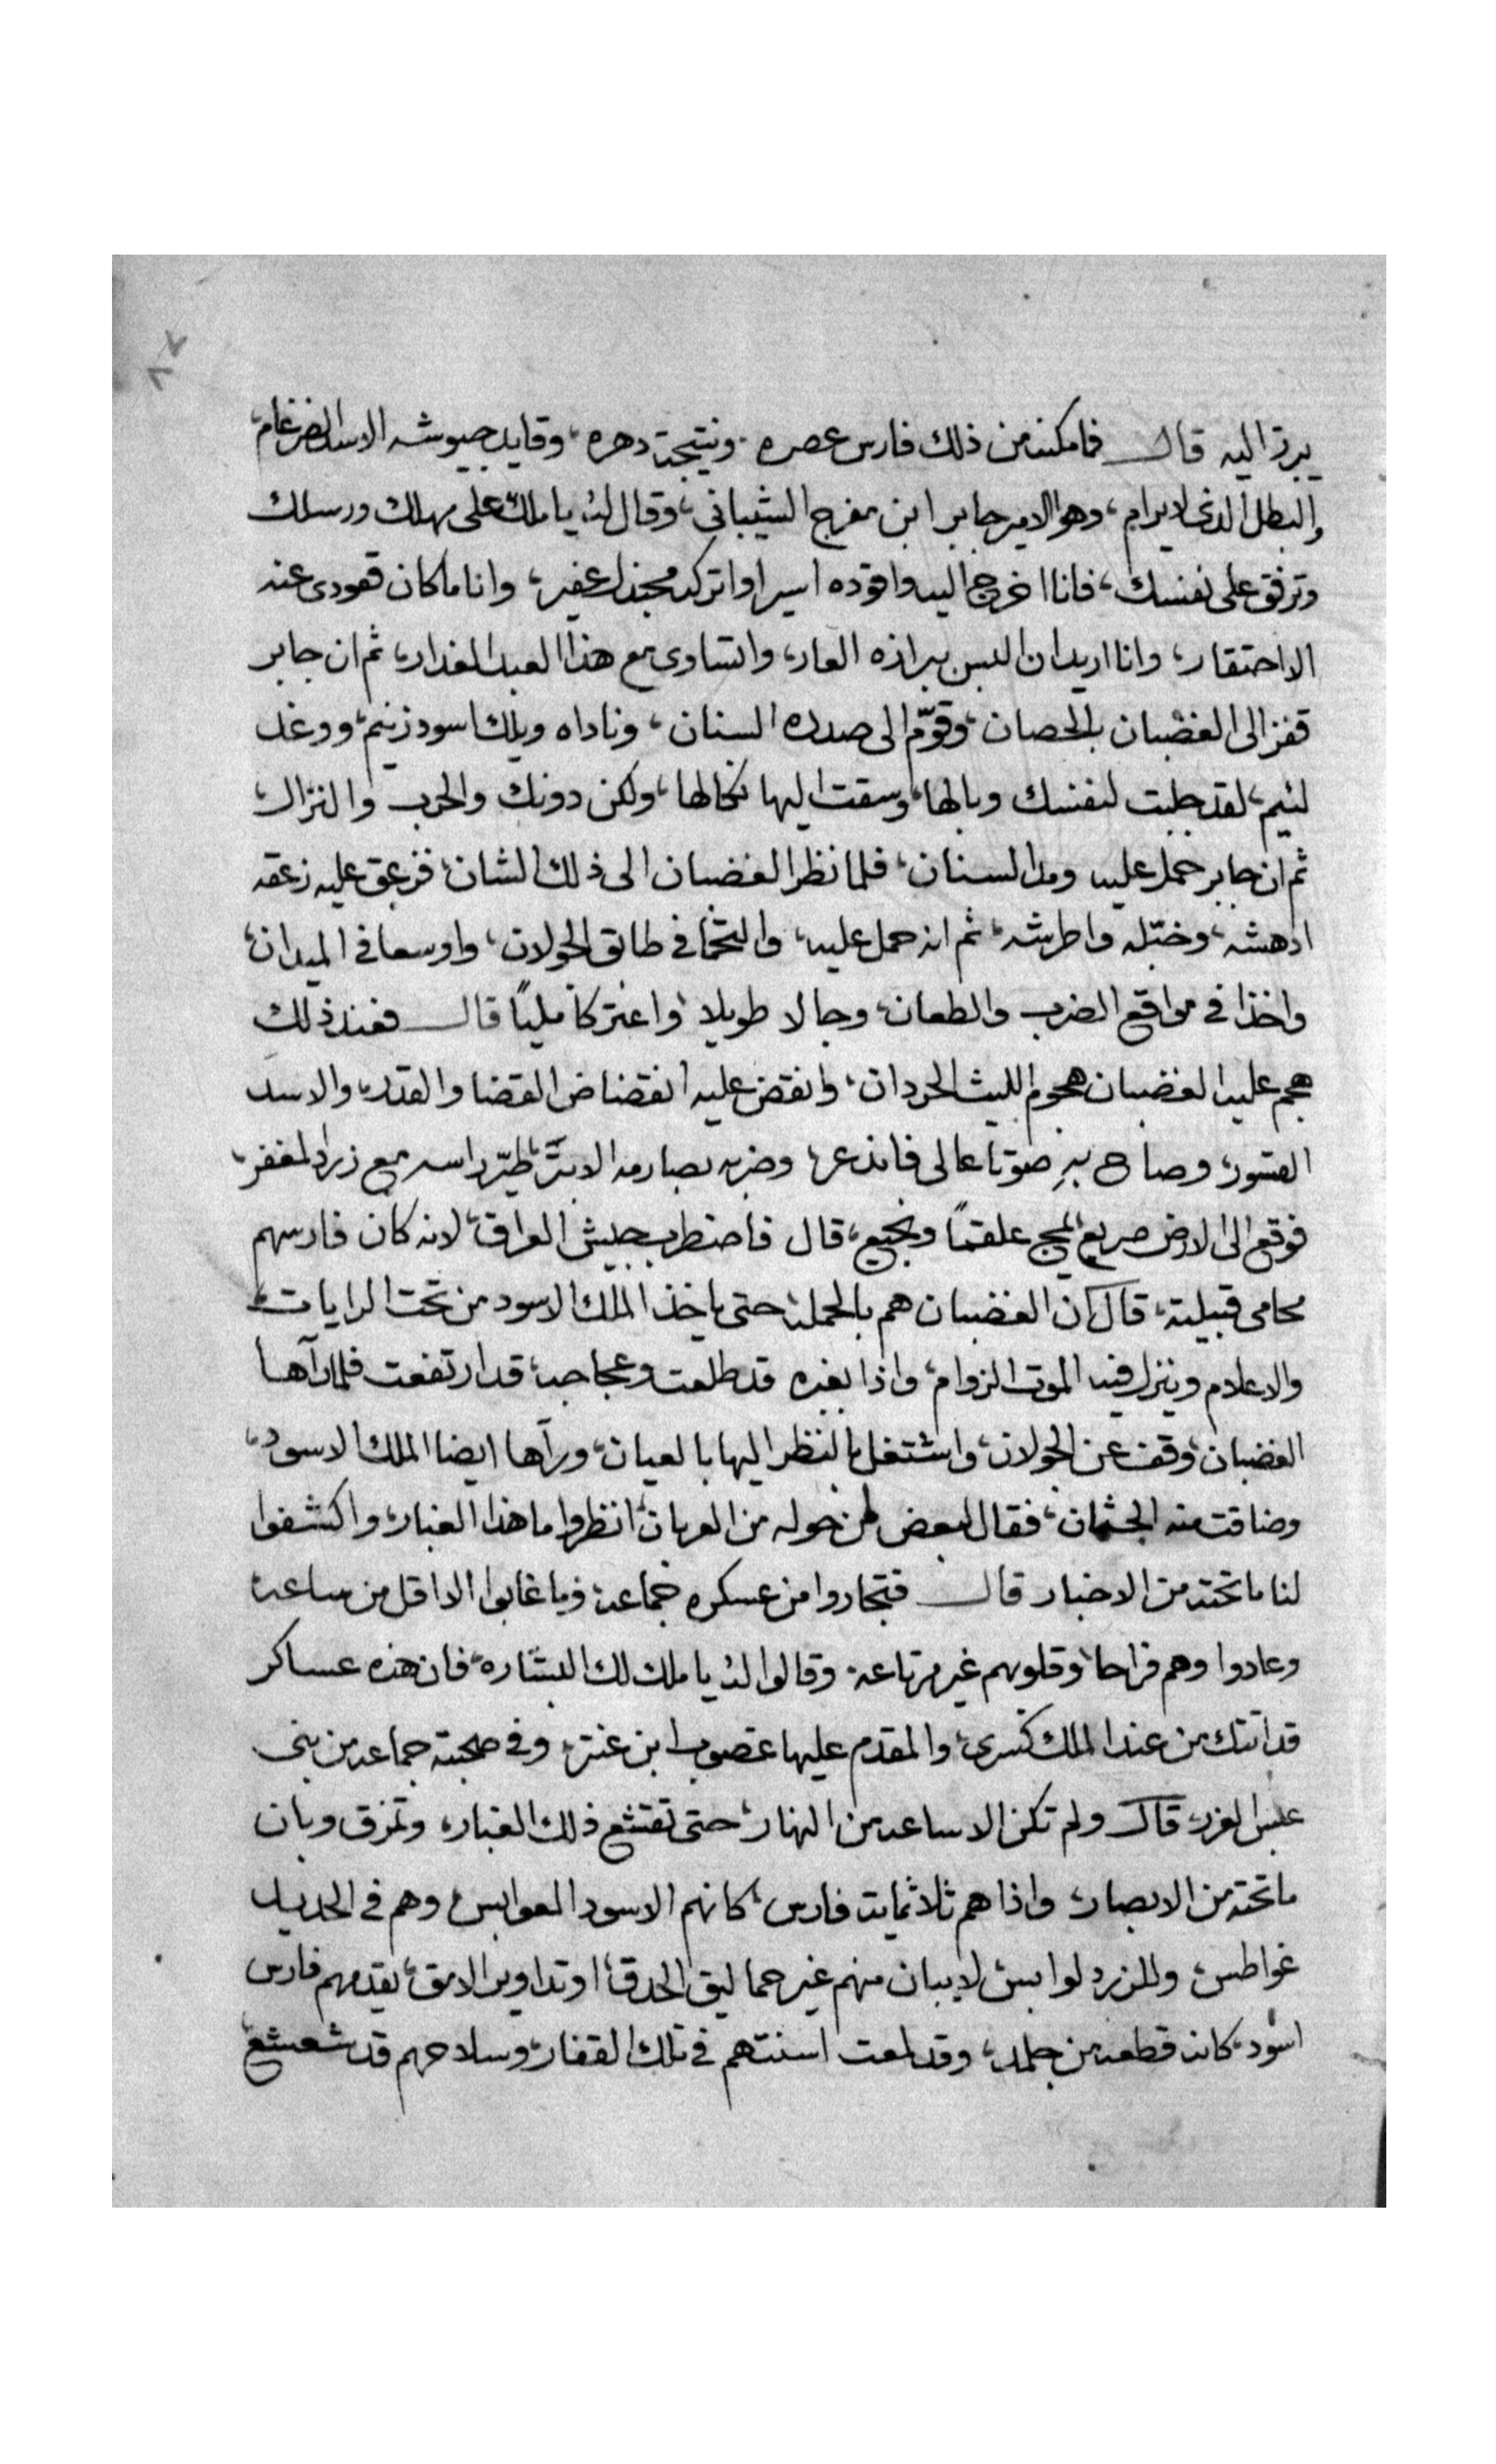 ٧٨
يبرز اليه قال فامكنه من ذلك فارس عصره، ونتيجة دهره، وقايد جيوشه الاسد الضرغام،
والبطل الدى لا يرام، وهو الامير جابر ابن مفرج الشيبانى، وقال له يا ملك على مهلك ورسلك
وترفق على نفسك، فانا اخرج اليه واقوده اسيرا واتركه مجندل عفير، وانا ما كان قعودى عنه
الا احتقار، وانا اريد ان البس ببرازه العار، واتساوى مع هذا العبد الغدار، ثم ان جابر
قفز الى الغضبان بالحصان، وقوّم الى صدره السنان، وناداه ويلك اسود زنيم، ووغد
لئيم، لقد جلبت لنفسك وبالها، وسقت اليها نكالها، ولكن دونك والحرب والنزال،
ثم ان جابر حمل عليه ومد السنان، فلما نظر الغضبان الى ذلك الشان، فزعق عليه زعقه
ادهشه، وختله واطرشه، ثم انه حمل عليه، والتحما فى طابق الجولان، واوسعا فى الميدان،
واخذا فى مواقع الضرب والطعان، وجالا طويلا، واعتركا مليًا قال فعند ذلك
هجم عليه الغضبان هجوم الليث الحردان، وانقض عليه انقضاض القضا والقدر، والاسد
القسور، وصاح بهِ صوتا عالى فانذعر، وضربه بصارمه الابتر، طيّر راسه مع زرد المغفر،
فوقع الى الارض صريع يمج علقمًا ونجيع، قال فاضطرب جيش العراق، لانه كان فارسهم
محامى قبيلته، قال ان الغضبان هم بالحمله حتى ياخذ الملك الاسود من تحت الرايات،
والاعلام وينزل فيه الموت الزوام، واذا بغبره قد طلعت وعجاجه، قد ارتفعت فلما رآها
الغضبان، وقف عن الجولان، واشتغل بالنظر اليها بالعيان، ورآها ايضا الملك الاسود،
وضاقت منه الجثمان، فقال لبعض من حوله من العربان، انظروا ما هذا الغبار، واكشفوا
لنا ما تحته من الاخبار قال فتجاروا من عسكره جماعه، وما غابوا الا اقل من ساعه
وعادوا وهم فراحا، وقلوبهم غير مرتاعه، وقالوا له يا ملك لك البشاره، فان هذه عساكر
قد اتتك من عند الملك كسرى، والمقدم عليها غصوب ابن عنتر، وفى صحبته جماعه من بنى
عبس الغرر، قال ولم تكن الا ساعه من النهار، حتى تقشع ذلك الغبار، وتمزق وبان
ما تحته من الابصار، واذا هم ثلاثمايت فارس، كانهم الاسود العوابس، وهم فى الحديد
غواطس، وللزرد لوابس، لا يبان منهم غير حماليق الحدق، او تداوير الامق، يقدمهم فارس
اسود، كانه قطعه من جلمد، وقد لمعت اسنتهم فى تلك القفار، وسلاحهم قد شعشع